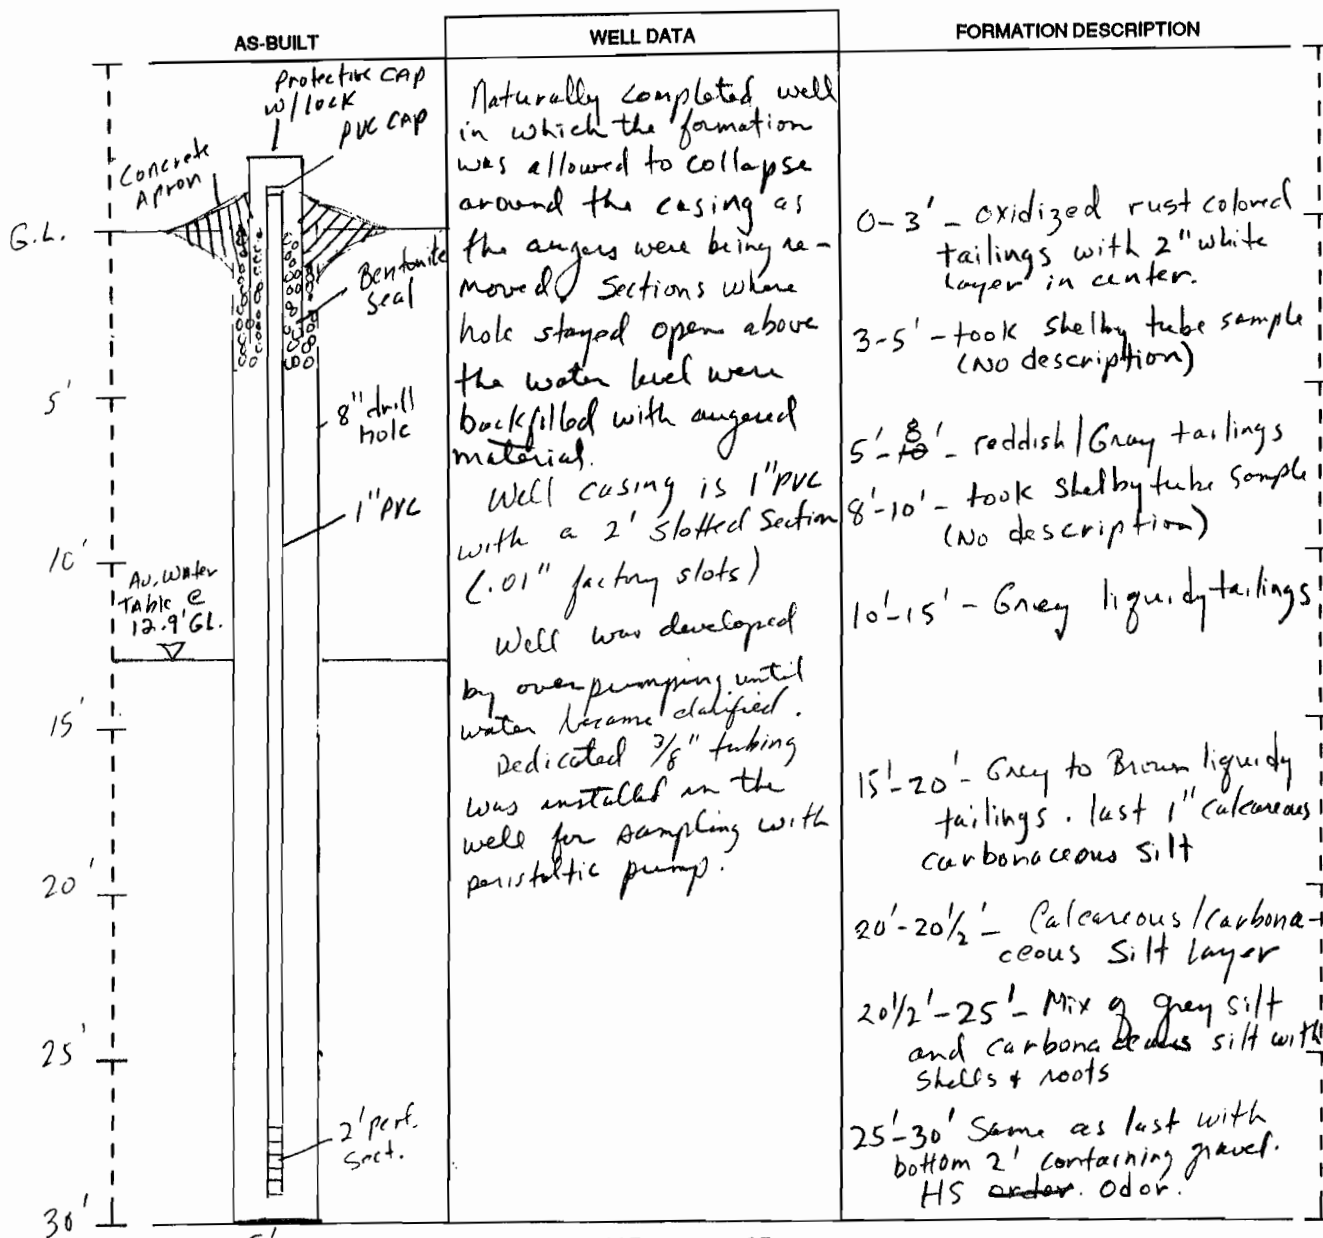 AS-BUILT
Protective CAP
w/ lock
PVC CAP
Concrete
Apron
G.L.
Bentonite
Seal
5'
8" drill
hole
1" PVC
10'
Av. Water
Table @
12.9' GL.
15'
20'
25'
2' perf.
Sect.
30'
WELL DATA
Naturally completed well
in which the formation
was allowed to collapse
around the casing as
the augers were being re-
moved. Sections where
hole stayed open above
the water level were
backfilled with augered
material.
Well casing is 1" PVC
with a 2' slotted section
(.01" factory slots)
Well was developed
by over pumping until
water became clarified.
Dedicated 3/8" tubing
was installed in the
well for sampling with
peristaltic pump.
FORMATION DESCRIPTION
0-3' - oxidized rust colored
tailings with 2" white
layer in center.
3-5' - took Shelby tube sample
(No description)
5'-8' - reddish/Gray tailings
8'-10' - took Shelby tube sample
(No description)
10'-15' - Grey liquidy tailings
15'-20' - Grey to Brown liquidy
tailings. last 1" calcareous
carbonaceous silt
20'-20 1/2' - Calcareous/carbona-
ceous Silt Layer
20 1/2'-25' - Mix of grey silt
and carbonaceous silt with
Shells & roots
25'-30' Same as last with
bottom 2' containing gravel.
HS Odor.